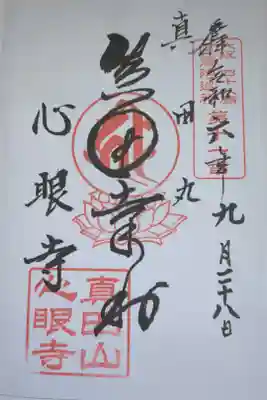 奉拝 令和六年九月二十八日
真田丸
真田幸村
心眼寺
真田山
心眼寺